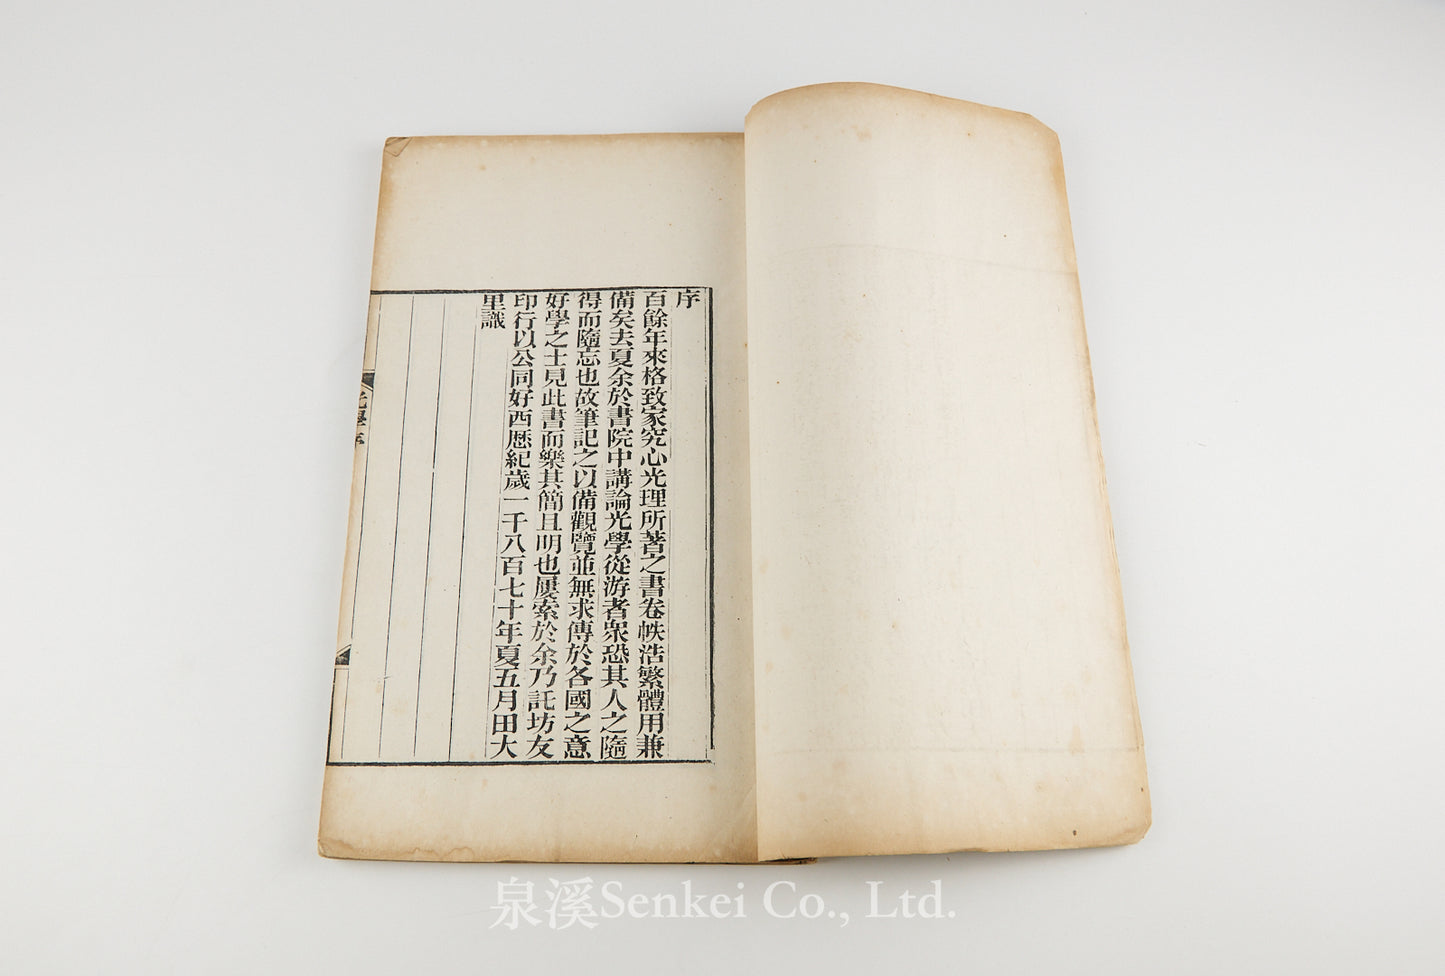 序
百餘年來格致家究心光理所著之書卷帙浩繁體用兼
備矣去夏余於書院中講論光學從游者衆恐其人之隨
得而隨忘也故筆記之以備觀覽並無求傳於各國之意
好學之士見此書而樂其簡且明也屢索於余乃託坊友
印行以公同好西歷紀歲一千八百七十年夏五月田大
里識
光學序
泉溪Senkei Co., Ltd.